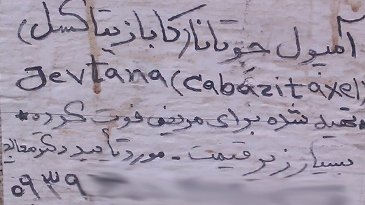 آمپول جوتانا (کابازیتاکسل)
Jevtana (Cabazitaxel)
تهیه شده برای مریض فوت کرده
بسیار زیر قیمت - مورد تأیید دکتر معالج
۰۹۳۹